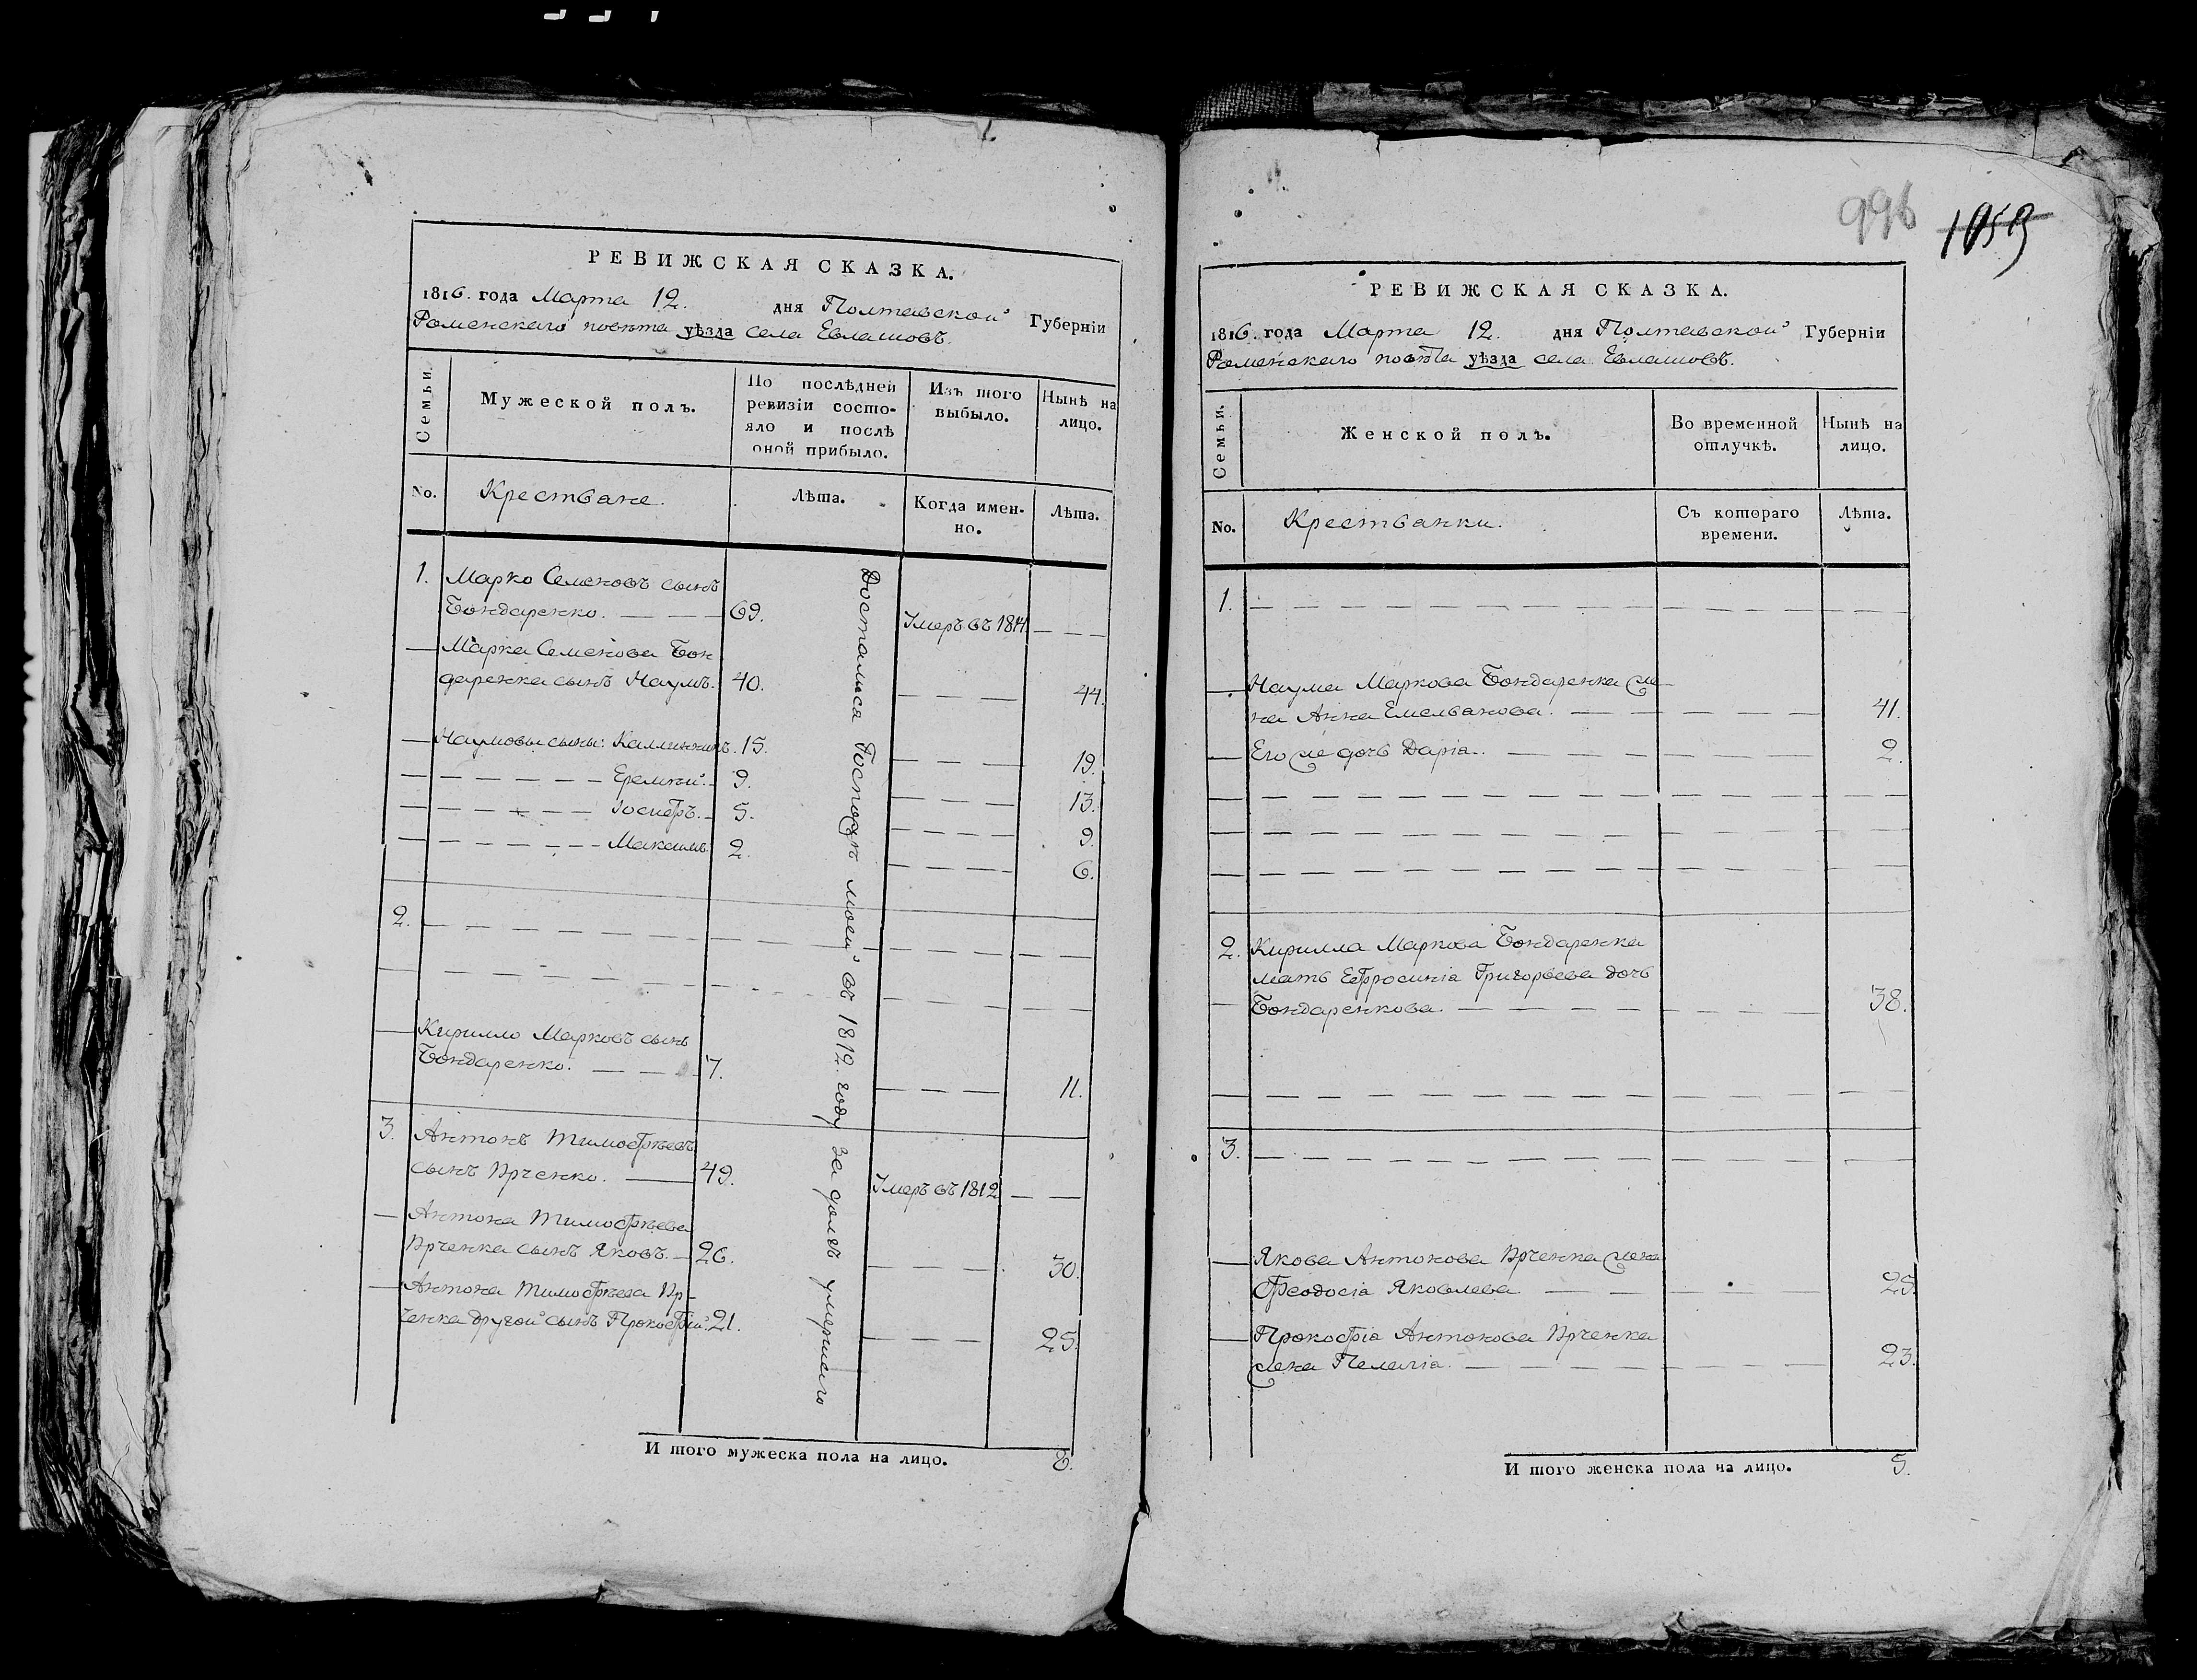 РЕВИЖСКАЯ СКАЗКА.
1816. года Марта 12. дня Полтавской Губерніи
Роменскаго повѣта уѣзда села Евлашовъ.
Семьи.
Мужеской полъ.
По послѣдней ревизіи состояло и послѣ оной прибыло.
Изъ того выбыло.
Нынѣ на лицо.
No.
Крестьяне.
Лѣта.
Когда именно.
Лѣта.
1. Марко Семеновъ сынъ
Бондаренко. 69. Умеръ въ 1814
Марка Семенова Бон
даренка сынъ Наумъ. 40. 44.
Наумовы сыны: Калинникъ. 15. 19.
Еремѣй. 9. 13.
Іосифъ. 5. 9.
Максимъ. 2. 6.
2.
Кирило Марковъ сынъ
Бондаренко. 7. 11.
3. Антонъ Тимофѣевъ
сынъ Ярченко. 49. Умеръ въ 1812
Антона Тимофѣева
Ярченка сынъ Яковъ. 26. 30.
Антона Тимофѣева Яр-
ченка другой сынъ Прокофій. 21. 25.
Досталися Госпожѣ моей въ 1812. году за долгъ умершаго
И того мужеска пола на лицо. 8.
996 1059
РЕВИЖСКАЯ СКАЗКА.
1816. года Марта 12. дня Полтавской Губерніи
Роменскаго повѣта уѣзда села Евлашовъ.
Семьи.
Женской полъ.
Во временной отлучкѣ.
Нынѣ на лицо.
No.
Крестьянки.
Съ котораго времени.
Лѣта.
1.
Наума Маркова Бондаренка же
на Анна Емельянова. 41.
Его же дочь Дарія. 2.
2. Кирилла Маркова Бондаренка
мать Ефросинія Григорьева дочь
Бондаренкова. 38.
3.
Якова Антонова Ярченка жена
Феодосія Яковлева 25.
Прокофія Антонова Ярченка
жена Пелагія. 23.
И того женска пола на лицо. 5.